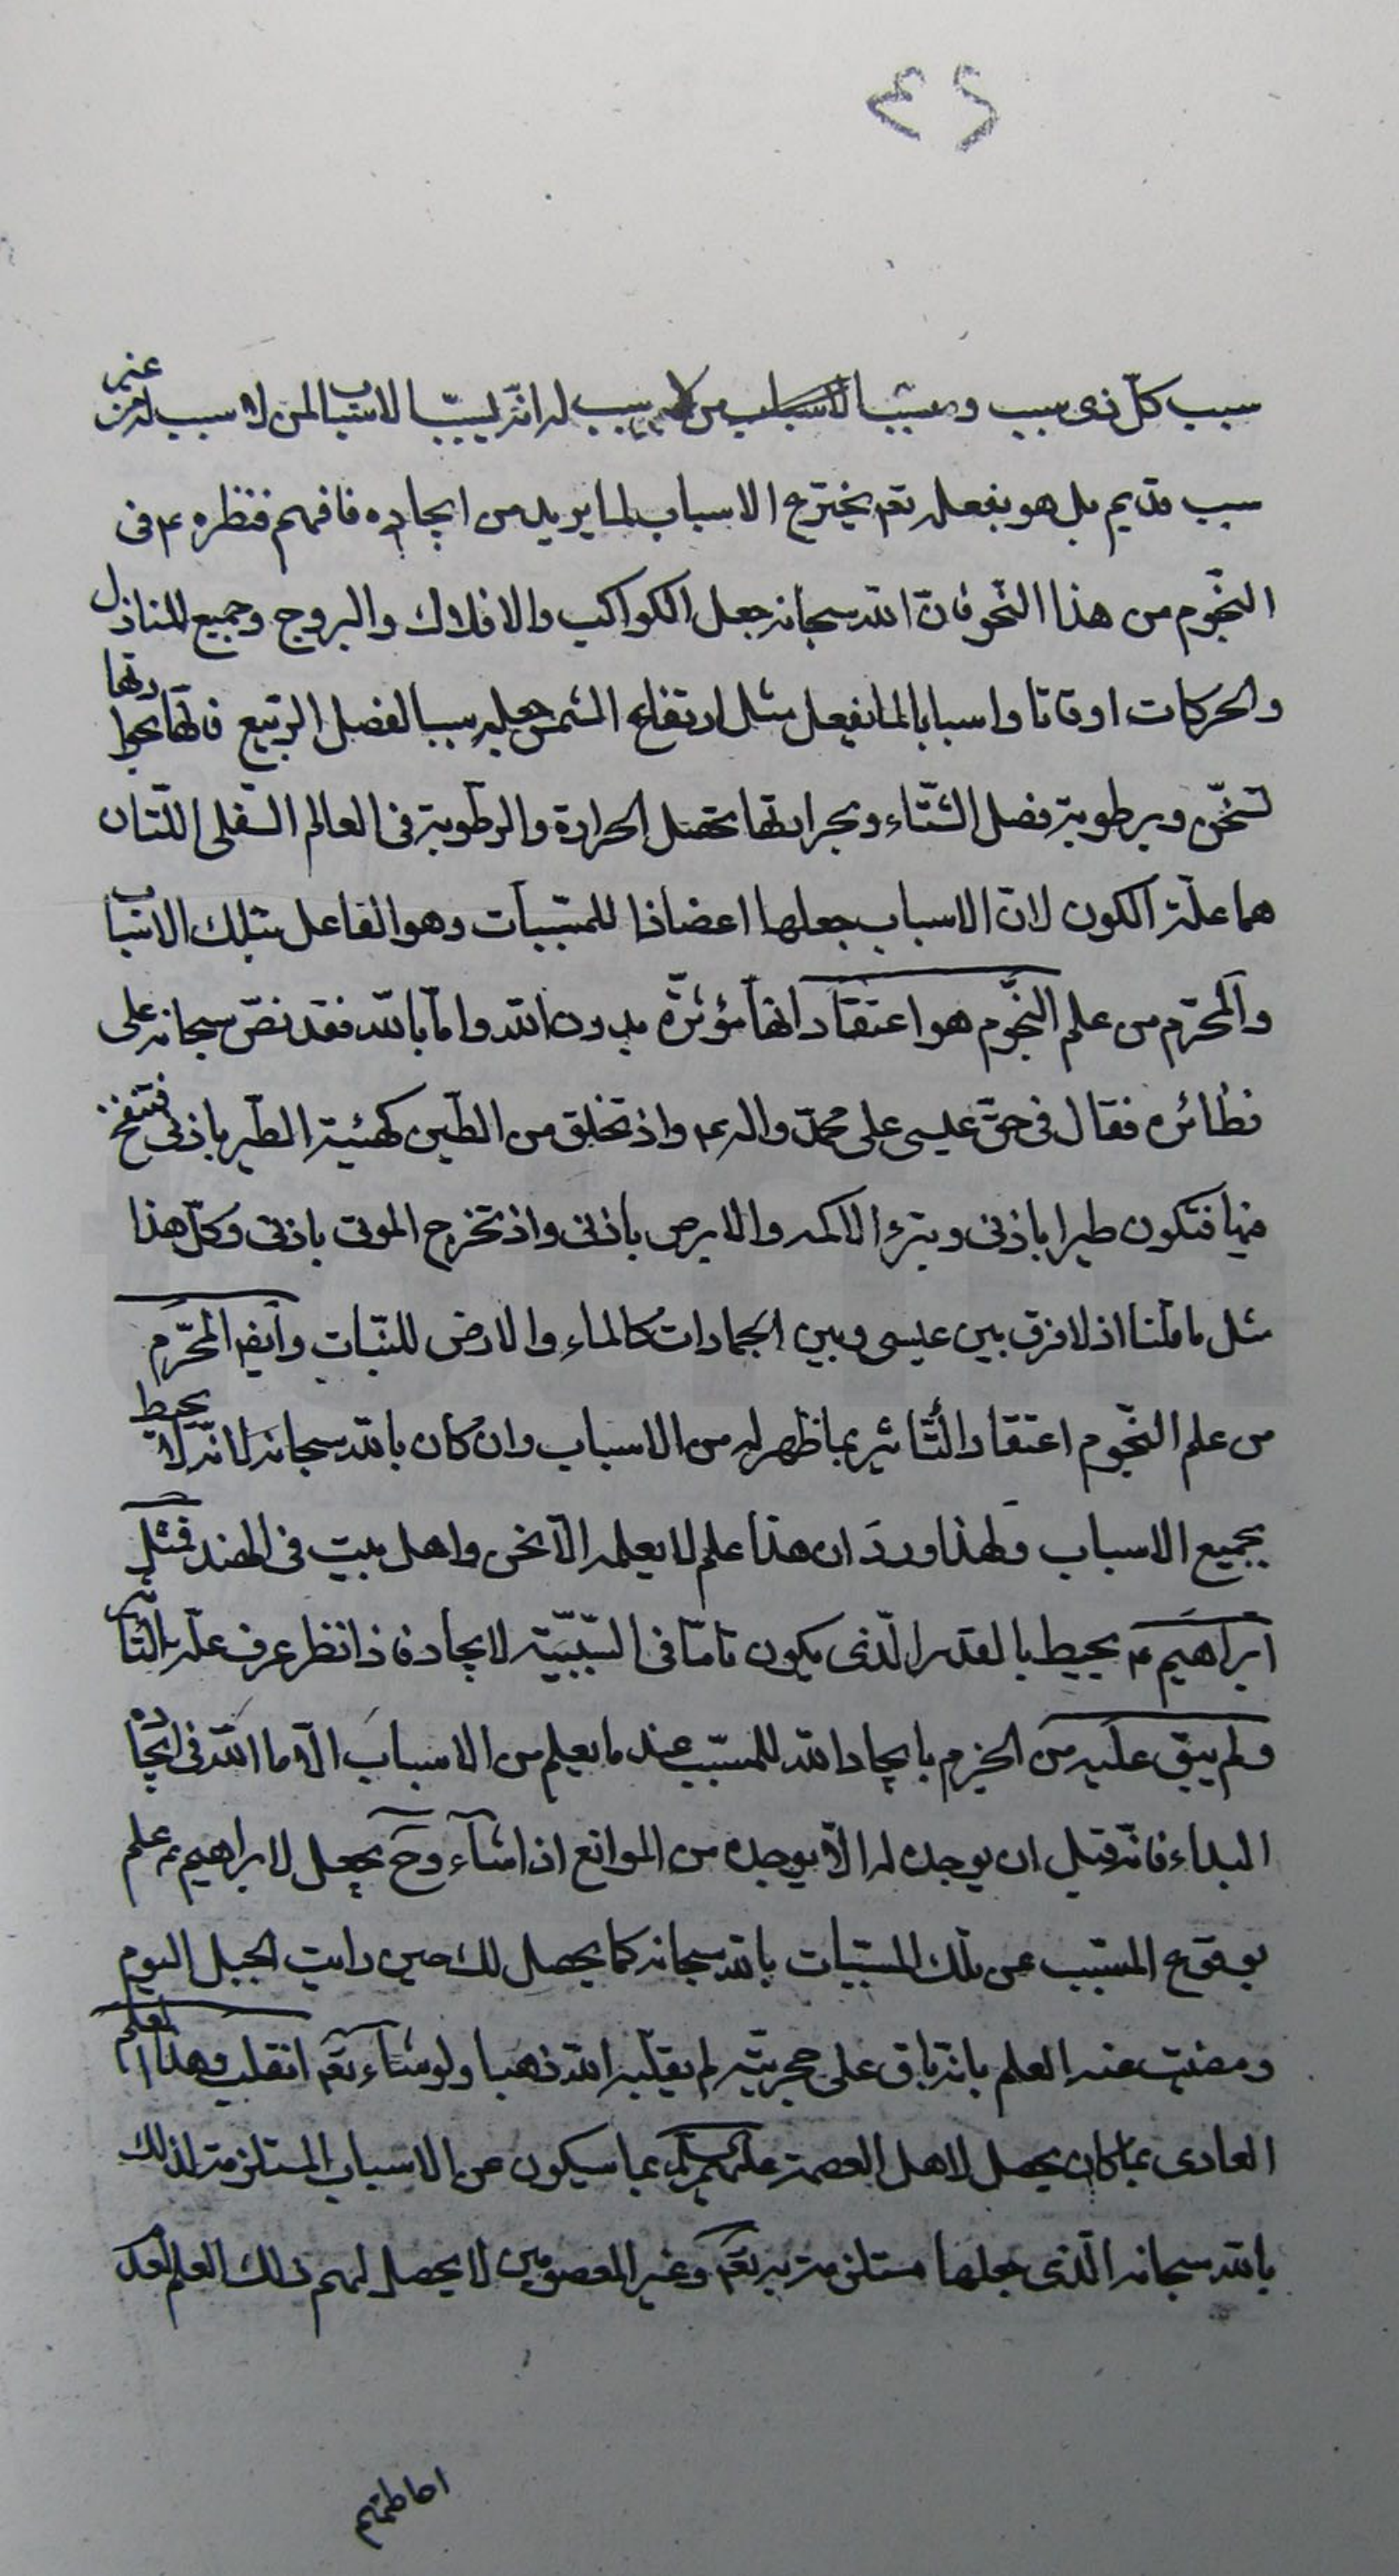 ٤٢
سبب كلّ ذى سبب و مسبّب الاسباب من لا سبب له انّه ليسبّب الاسباب لمن لا سبب له من غير
سبب قديم بل هو بفعله تعم يخترع الاسباب لما يريد من ايجاده فافهم فنظره ع فى
النجّوم من هذا النّحو فانّ الله سبحانه جعل الكواكب والافلاك والبروج وجميع المنازل
والحركات اوقاتا واسبابا لما يفعل مثل ارتفاع الشمس جعله سببا لفصل الرّبيع فانّها بحرارتها
تسخّن وبرطوبة فصل الشّتاء وبحرارتها تحصل الحرارة والرّطوبة فى العالم السّفلى اللّتان
هما علّة الكون لانّ الاسباب جعلها اعضادا للمسبّبات وهو الفاعل بتلك الاسباب
والمحرّم من علم النجّوم هو اعتقاد انها مؤثّرة بدون الله وامّا بالله فقد نصّ سبحانه على
نظائره فقال فى حقّ عيسى على محمّد واله وع واذ تخلق من الطّين كهيئة الطّير باذنى فتنفخ
فيها فتكون طيرا باذنى وتبرء الاكمه والابرص باذنى واذ تخرج الموتى باذنى وكلّ هذا
مثل ما قلنا اذ لا فرق بين عيسى وبين الجمادات كالماء والارض للنّبات وايضا المحّرم
من علم النّجوم اعتقاد التّأثير بما ظهر له من الاسباب وان كان بالله سبحانه لانّه لا يحيط
بجميع الاسباب ولهذا ورد ان هذا علم لا يعلمه الّا نحن واهل بيت فى الهند فمثل
ابراهيم ع يحيط بالقدر الّذى يكون تامّا فى السّببيّة لايجاد فاذا نظر عرف علّة التّأثير
ولم يبق عليه من الجزم بايجاد الله للمسبّب عند ما يعلم من الاسباب الّا ما لله فى ايجاده
البداء فانّه قبل ان يوجده له الّا يوجده من الموانع اذا شآء وح يحصل لابراهيم ع علم
بوقوع المسّبب عن تلك المسبّبات بالله سبحانه كما يحصل لك حين رايت الجبل اليوم
ومضيت عنه العلم بانّه باق على حجريّته لم يقلّبه الله ذهبا ولو شاء تعم انقلب وهذا العلم
العادى بما كان يحصل لاهل العصمة عليهم السلام بما سيكون عن الاسباب المستلزمة لذلك
بالله سبحانه الّذى جعلها مستلزمة به تعم وغير المعصومين لا يحصل لهم ذلك العلم لعدم
احاطتهم